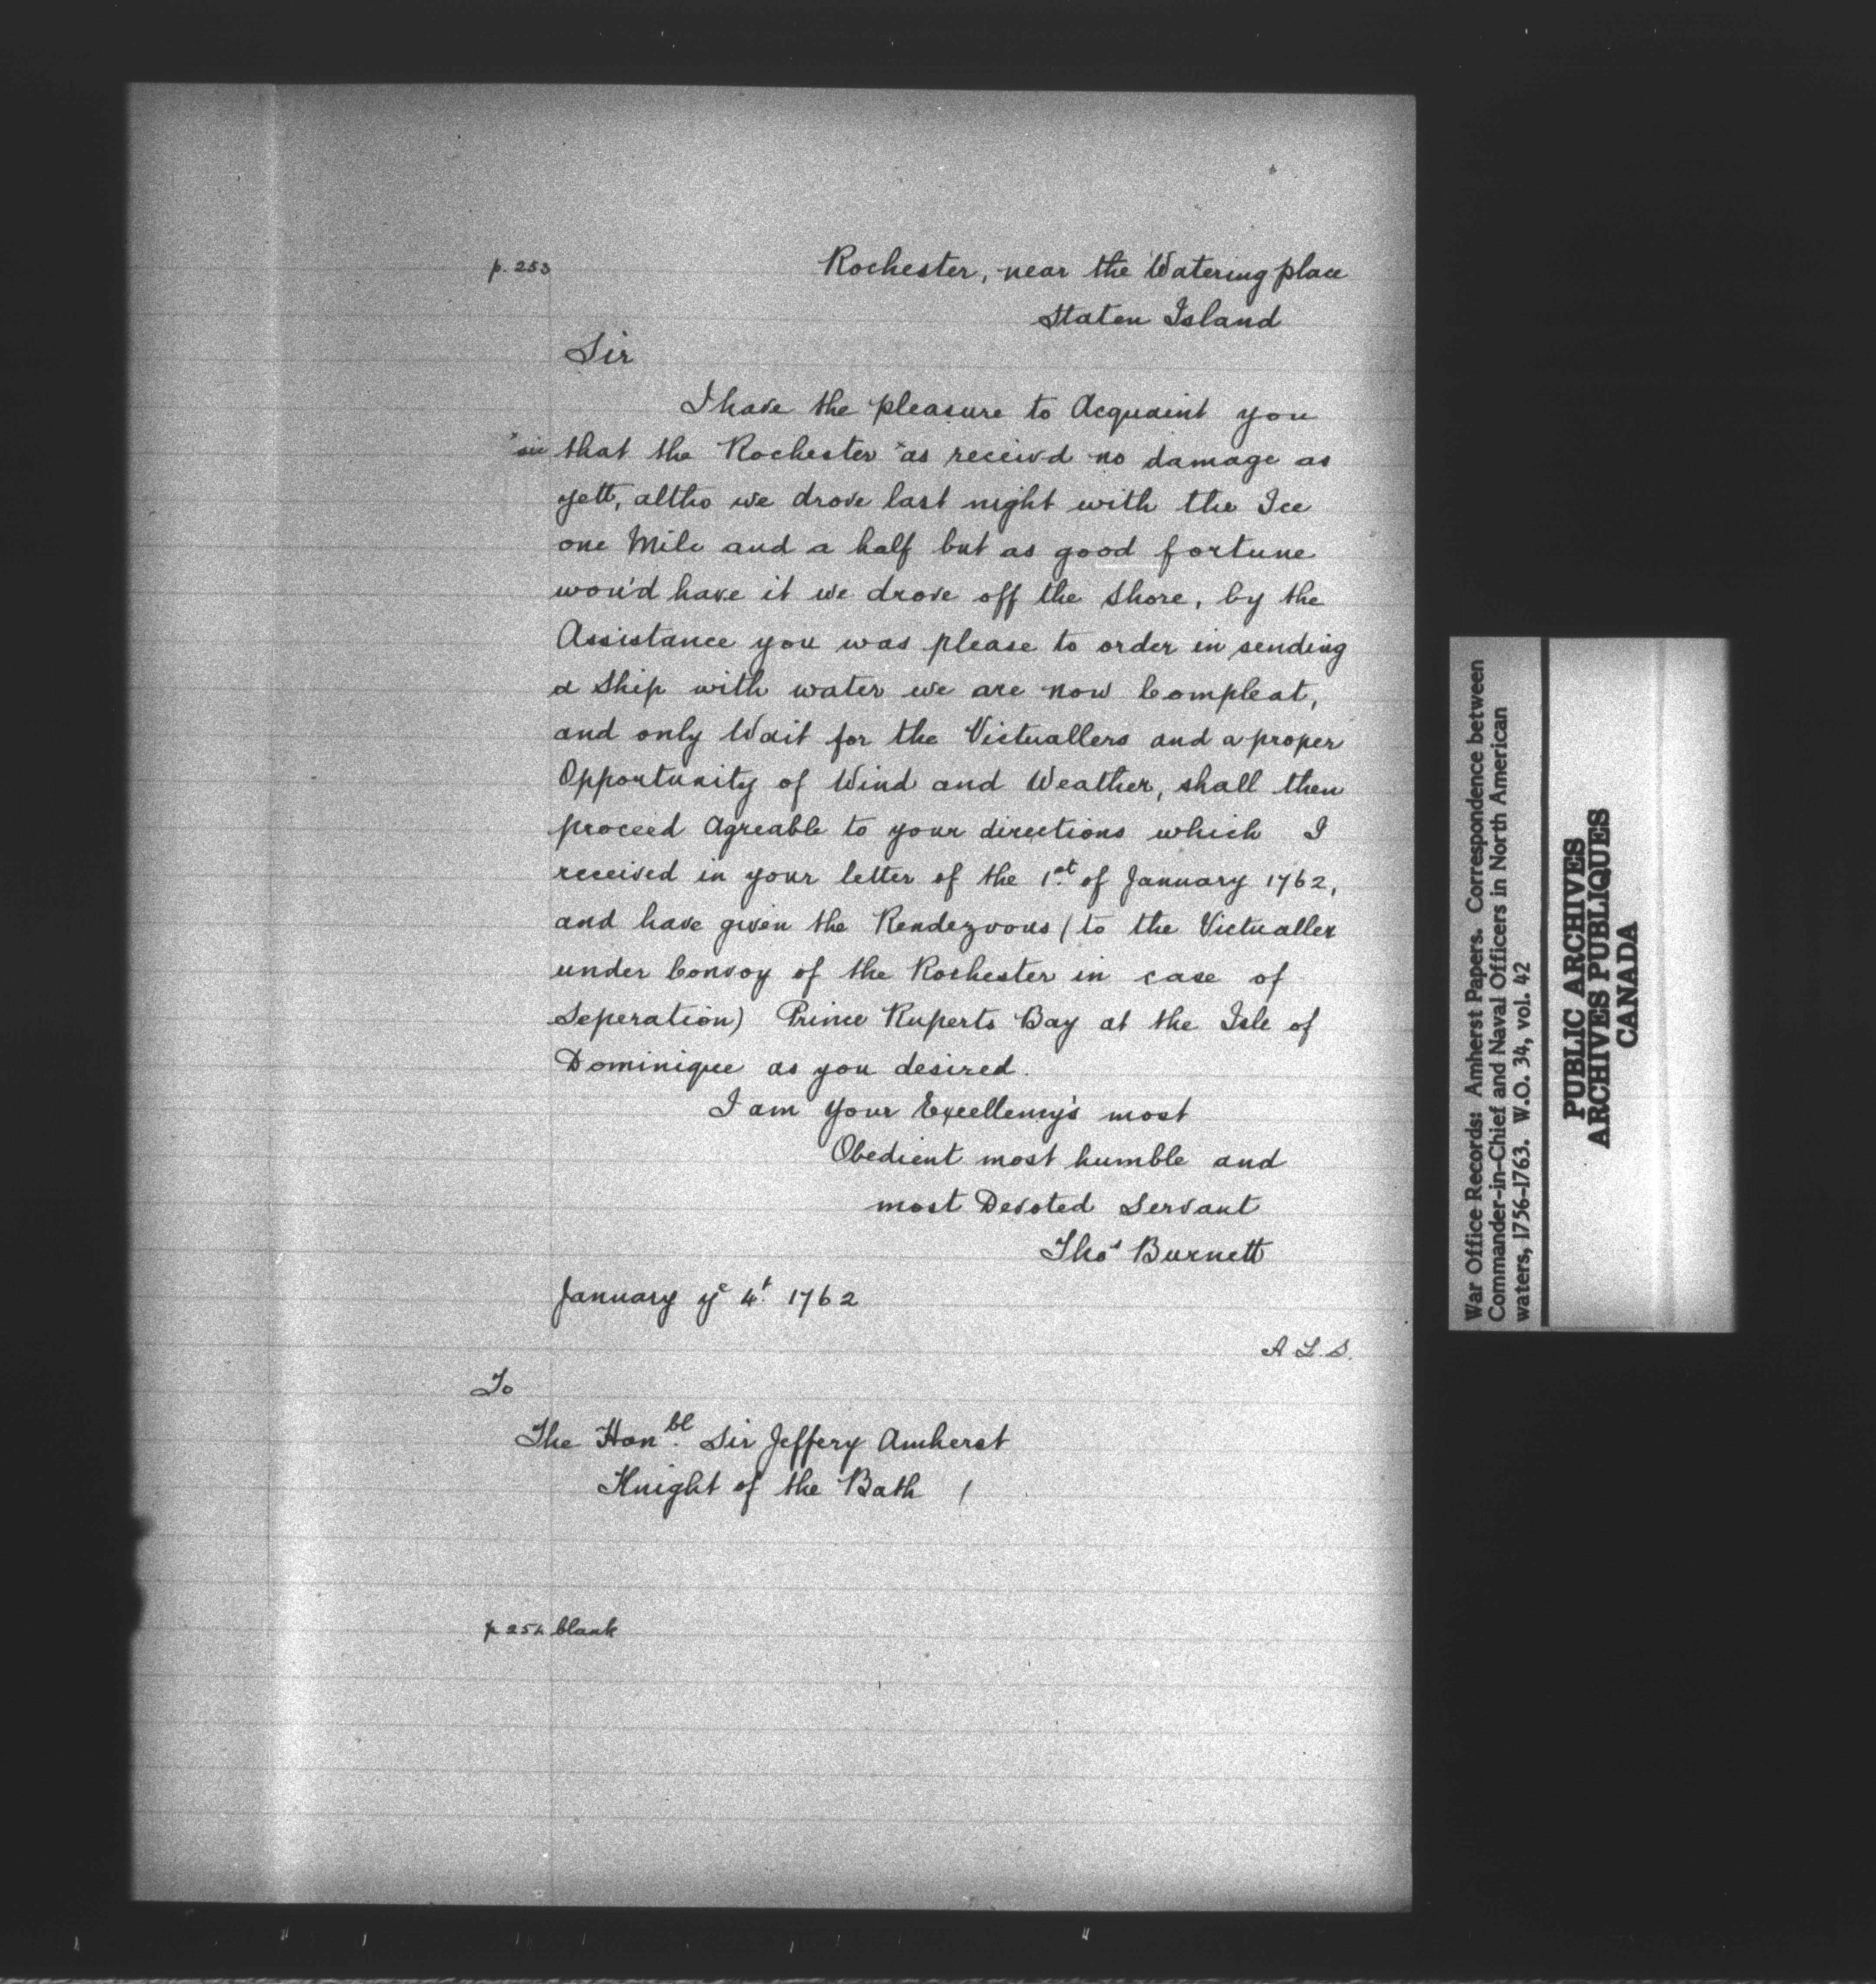 p. 253
Rochester, near the Watering place
Staten Island
Sir
I have the pleasure to Acquaint you
*sic that the Rochester *as receivd no damage as
yett, altho we drove last night with the Ice
one Mile and a half but as good fortune
wou'd have it we drove off the Shore, by the
Assistance you was please to order in sending
a Ship with water we are now Compleat,
and only Wait for the Victuallers and a proper
Opportunity of Wind and Weather, shall then
proceed Agreable to your directions which I
received in your letter of the 1st of January 1762,
and have given the Rendezvous (to the Victualler
under Convoy of the Rochester in case of
Seperation) Prince Ruperts Bay at the Isle of
Dominique as you desired.
I am Your Excellency's most
Obedient most humble and
most Devoted Servant
Thos Burnett
January ye 4t. 1762
A L.S.
To
The Honbl. Sir Jeffery Amherst
Knight of the Bath /
p 254 blank
War Office Records: Amherst Papers. Correspondence between
Commander-in-Chief and Naval Officers in North American
waters, 1756-1763. W.O. 34, vol. 42
PUBLIC ARCHIVES
ARCHIVES PUBLIQUES
CANADA